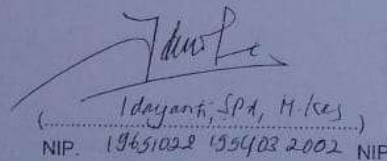 ( Idayanti, SPd, M.Kes )
NIP. 19651028 199403 2002 NIP